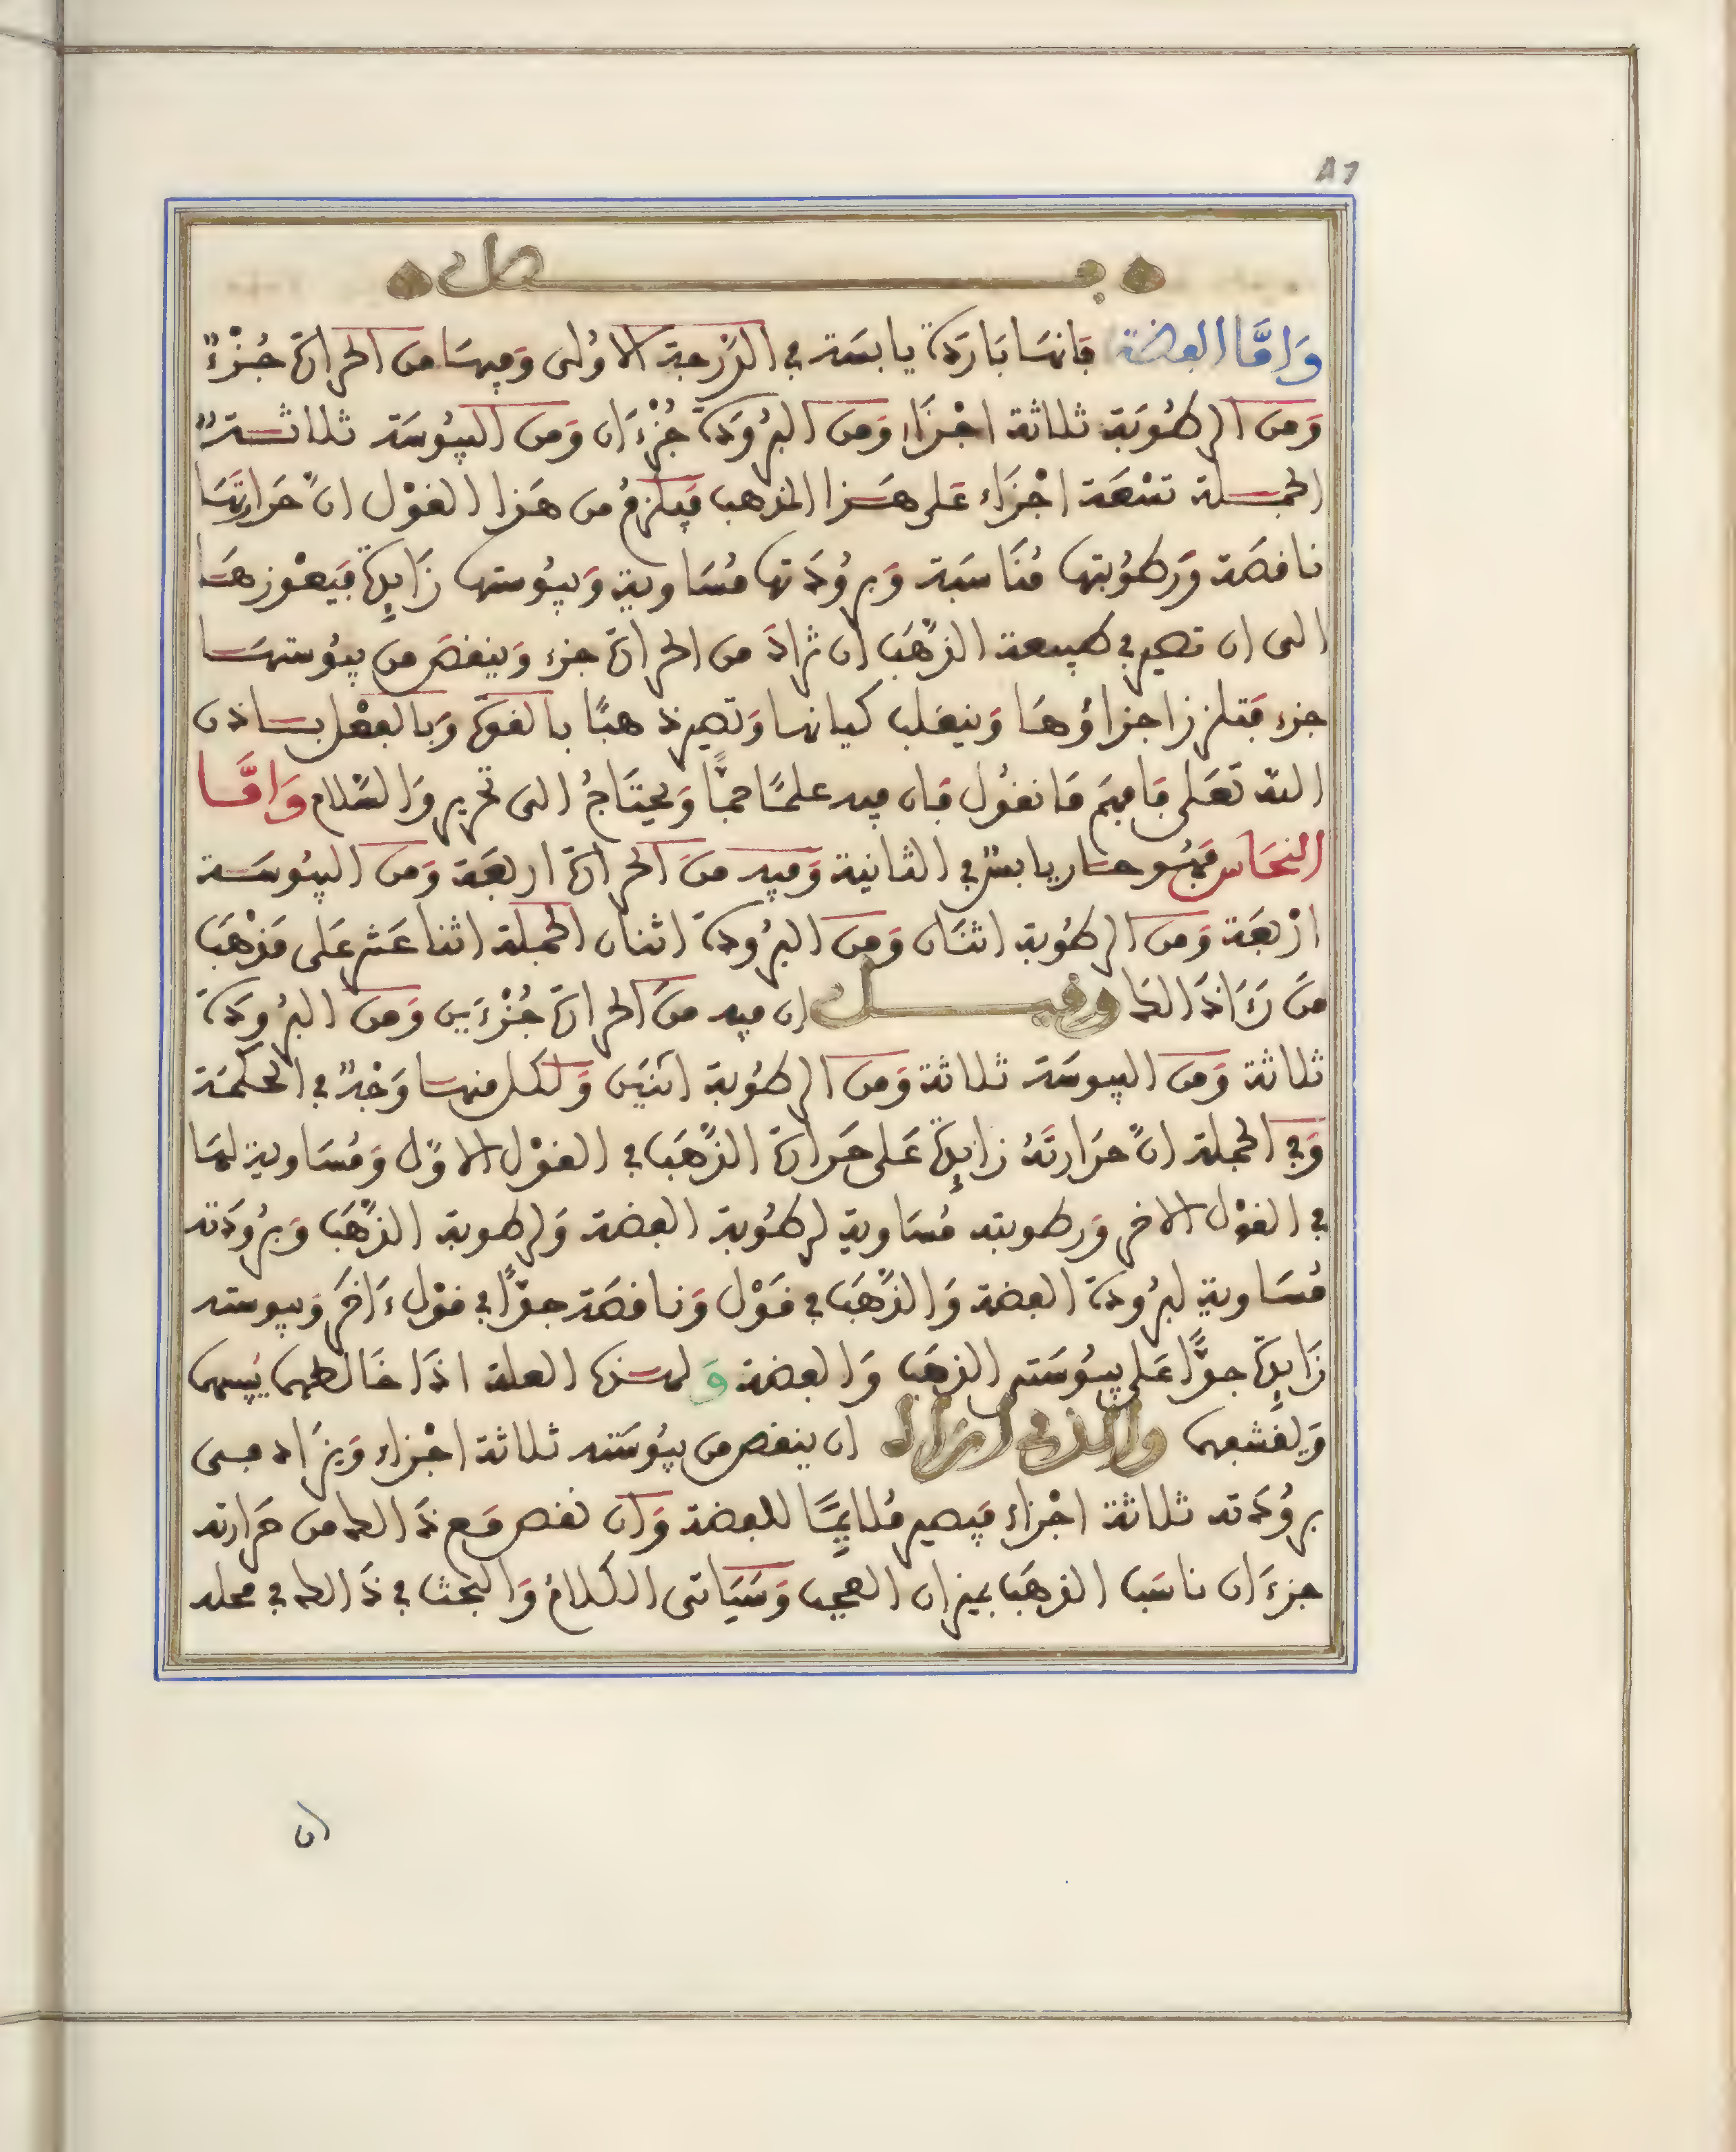 ٨٦
فصل
وَامَّا الفضة فانها بَارَدة يابسَة في الدَّرجة الاولى وَفيها من الحرارة جُزْءٌ
وَمن الرطوبَة ثلاثة اجْزَاء وَمن البُرُودَة جُزْءَان وَمن اليبُوسَة ثلاثةٌ
الجملة تسْعَة اجْزَاء عَلى هَذا المذهب فيَلزمُ من هَذا القوْل انَّ حَرَارتهَا
ناقصَة وَرطوُبتها مُنَاسَبة وَبرُودَتها مُسَاوية وَيبُوستها زَايِدَة فيَعْوزهَا
الى ان تصير في طبيعة الذَّهَب ان يزادَ من الحرارة جزء وَينقصَ من يبُوستهَا
جزء فتلزز اجزاؤهَا وَينقلب كيانها وَتصير ذهبًا بالقوة وَبالفعْل باذن
الله تعَلى فافهَم مَا نقُول فان فيه علمًا جمًّا وَيحتَاجُ الى تحرير وَالسَّلام وَامَّا
النحَاس فهُو حار يابسٌ في الثانية وَفيه منَ الحرارة اربعَة وَمن اليبُوسَة
ارْبعَة وَمن الرطُوبة اثنَان وَمن البرُودة اثنان الجملة اثنا عَشر عَلى مَذْهَب
منَ رَءَا ذَالك وقيل ان فيه منَ الحرارة جُزْءَين وَمن البرُودَة
ثلاثة وَمن اليبوسَة ثلاثة وَمن الرطُوبة اثنَين وَلكل منها وَجْهٌ في الحكمَة
وَفي الجملة انَّ حَرَارتَهُ زايِدَة عَلى حَرارة الذَّهَب في القوْل الاوَّل وَمُسَاوية لهَا
في القوْل الاخر وَرطوبته مُسَاوية لرطُوبة الفضة وَلرطوبة الذَّهَب وَبرُودَته
مُسَاوية لبرُودة الفضة وَالذَّهَب في قَوْل وَناقصَة جدًّا في قوْل ءَاخَر وَيبوسته
زَايِدَة جدًّا عَلى يبُوسَتي الذهَب وَالفضة وَلهذه العلة اذَا خَالطهما يُيبسهما
وَيقشفهما والذي ازاله ان ينقص من يبُوسَته ثلاثة اجْزاء وَيزَاد في
برُودَته ثلاثة اجْزاء فيَصير مُلايمًا للفضة وَان نقص مَع ذَالك من حَرارته
جزءَان ناسَب الذهَب بميزان العجيب وَسَيَاتى الكلامُ وَالبحث في ذَالك في محله
ان